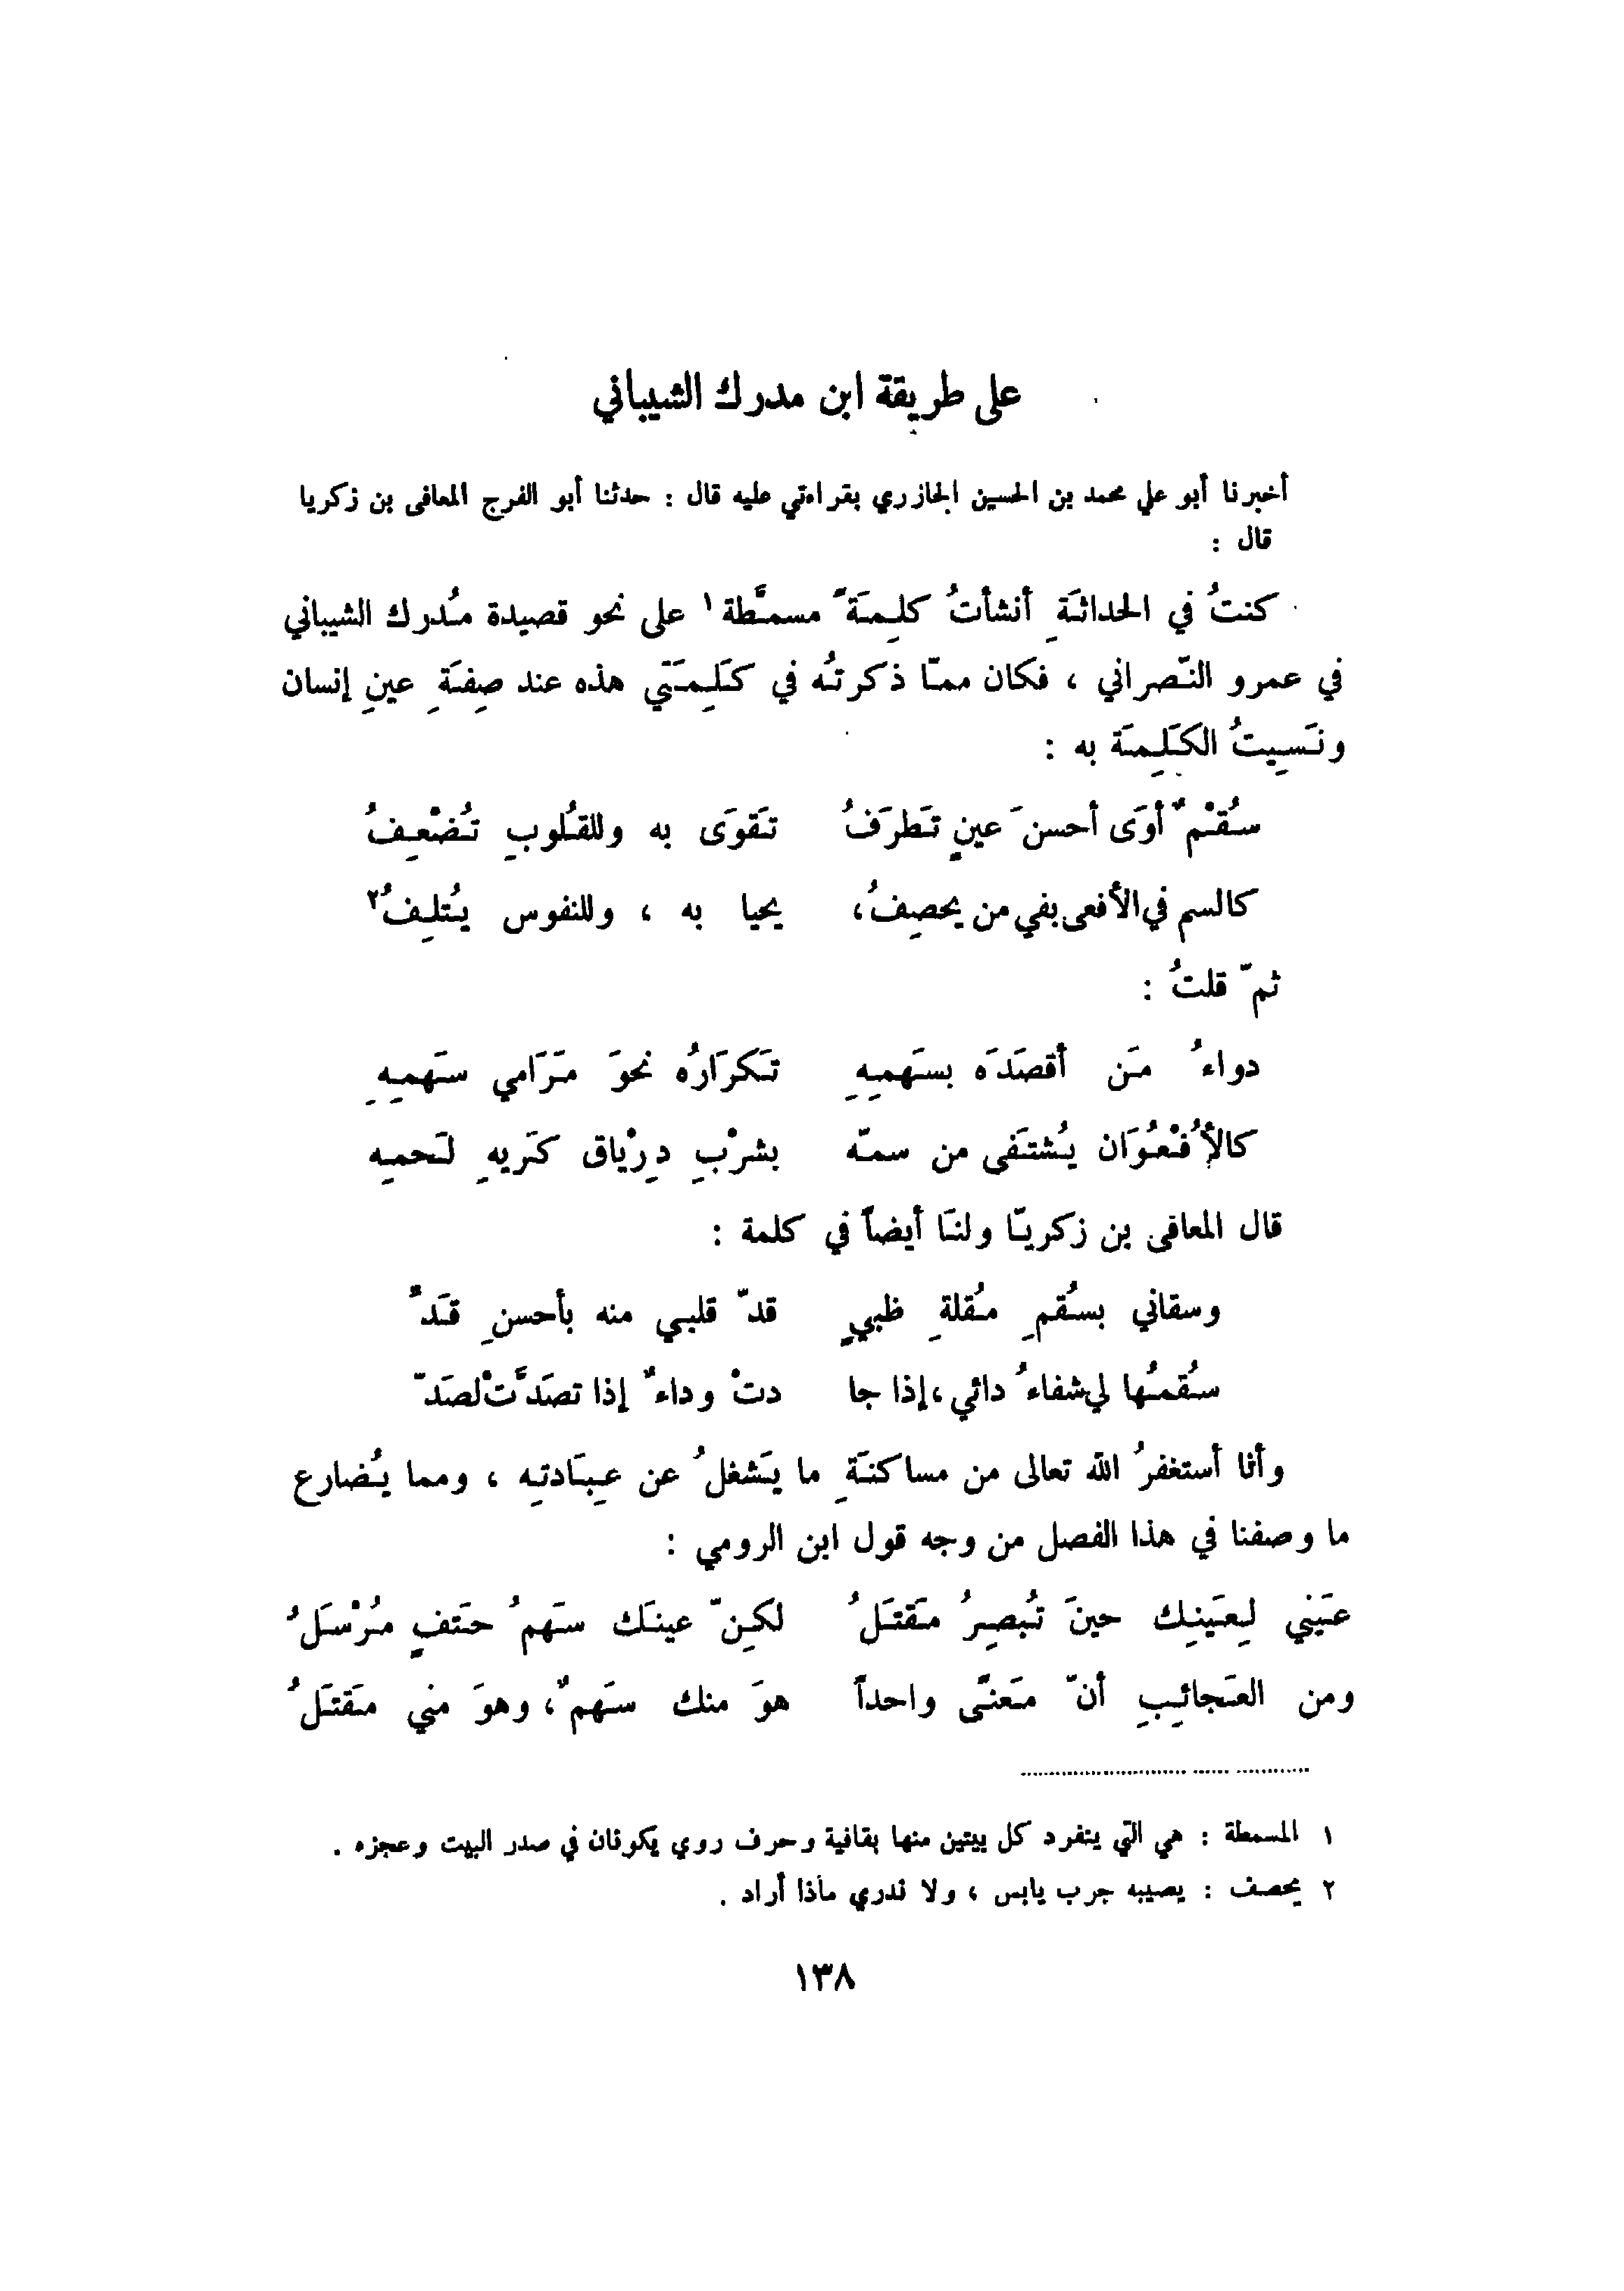 على طريقة ابن مدرك الشيباني
أخبرنا أبو علي محمد بن الحسين الجازري بقراءتي عليه قال : حدثنا أبو الفرج المعافى بن زكريا
قال :
كنتُ في الحداثَةِ أنشأتُ كلِمَةً مسمَّطة١ على نحو قصيدة مُدرك الشيباني
في عمرو النّصراني ، فكان ممّا ذكرتُه في كَلِمَتي هذه عند صِفَةِ عينِ إنسان
ونَسِيتُ الكَلِمَة به :
سُقْمٌ أوَى أحسنَ عينٍ تَطرَفُ تَقوَى به وللقُلوبِ تُضْعِفُ
كالسم في الأفعى بفي من يحصِفُ، يحيا به ، وللنفوس يُتلِفُ٢
ثمّ قلتُ :
دواءُ مَن أقصَدَه بسَهمِهِ تَكرَارُه نحوَ مَرَامي سَهمِهِ
كالأُفْعُوَان يُشتَفى من سمّه بشرْبِ دِرْياق كَريهِ لَحمِهِ
قال المعافى بن زكريّا ولنَا أيضاً في كلمة :
وسقاني بسُقمِ مُقلةِ ظبيٍ قدّ قلبي منه بأحسنِ قَدٍّ
سُقمُها لي شفاءُ دائي ، إذا جا دتْ وداءٌ إذا تصَدَّتْ لصَدّ
وأنا أستغفرُ الله تعالى من مساكنَةِ ما يَشغلُ عن عِبَادتِه ، ومما يُضارع
ما وصفنا في هذا الفصل من وجه قول ابن الرومي :
عَيني لِعَينِك حينَ تُبصِرُ مَقتَلُ لكِنّ عينَك سَهمُ حَتفٍ مُرْسَلُ
ومن العَجائِبِ أنّ مَعنًى واحداً هوَ منك سَهمٌ، وهوَ مني مَقتَلُ
١ المسمطة : هي التي ينفرد كل بيتين منها بقافية وحرف روي يكونان في صدر البيت وعجزه .
٢ يحصف : يصيبه جرب يابس ، ولا ندري ماذا أراد .
١٣٨